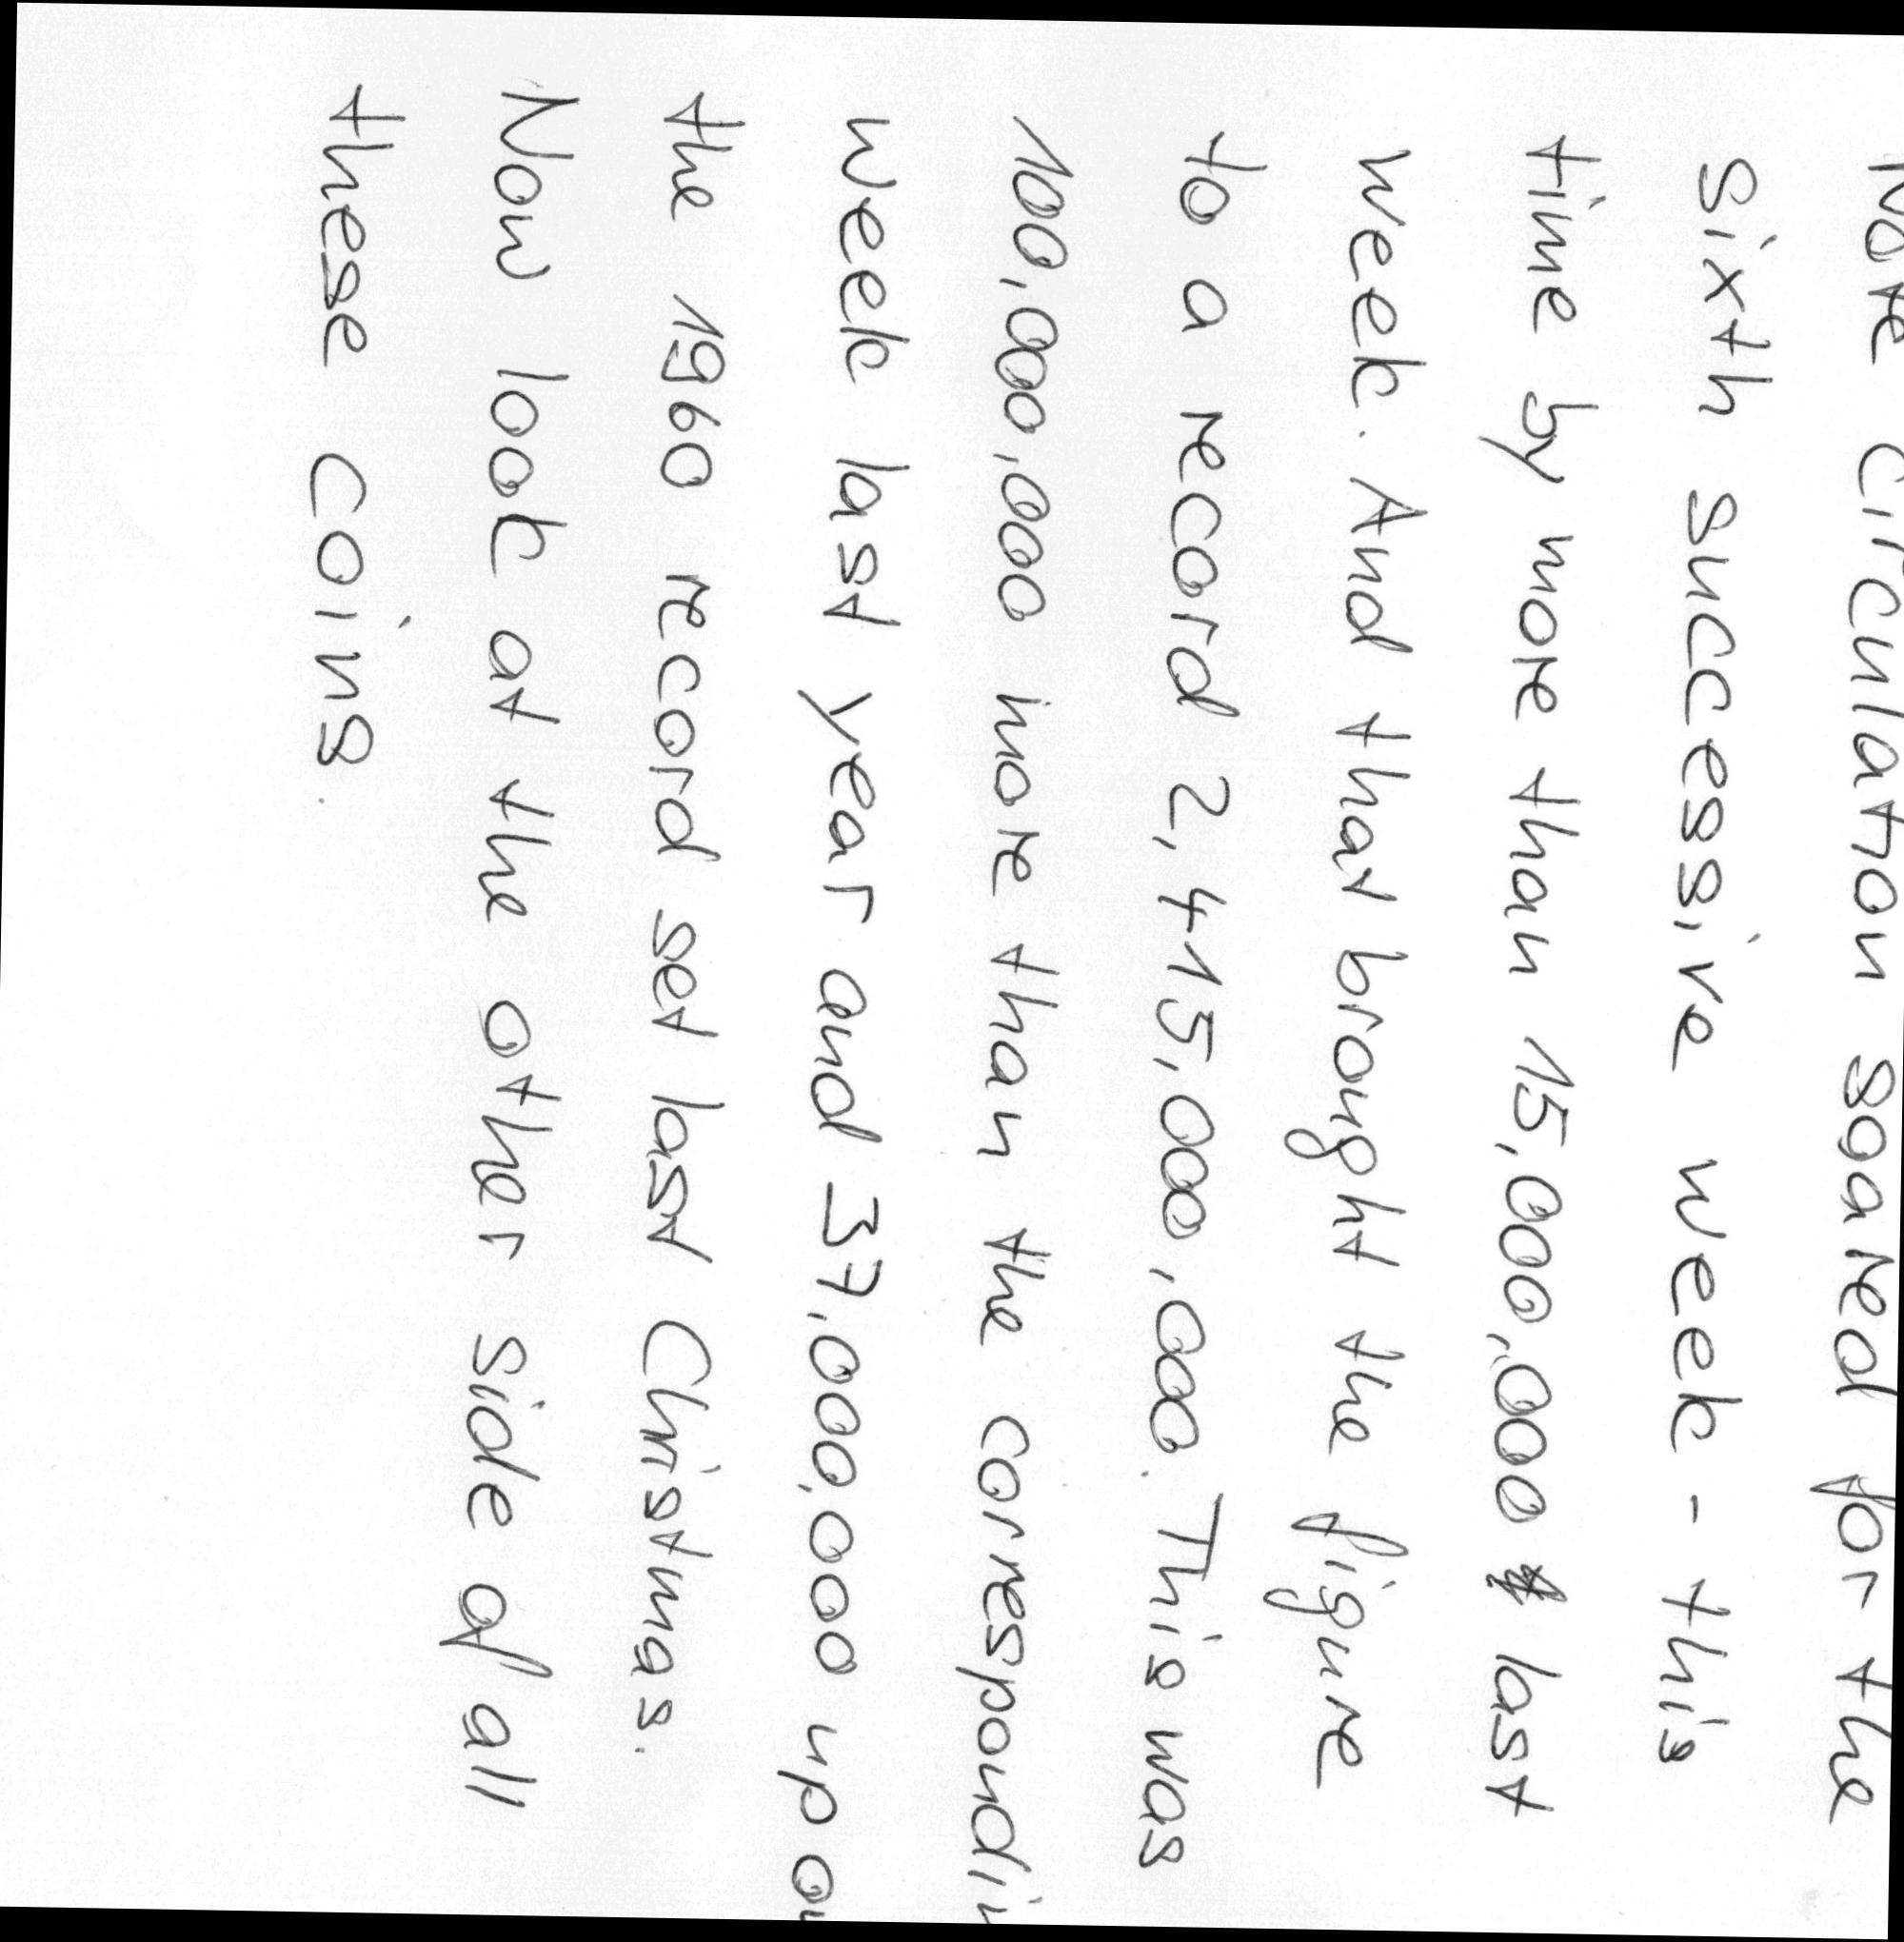 Note circulation soared for the
sixth successive week - this
time by more than 15,000,000 last
week. And that brought the figure
to a record 2,415,000,000. This was
100,000,000 more than the correspondin
week last year and 37,000,000 up on
the 1960 record set last Christmas.
Now look at the other side of all
these coins.